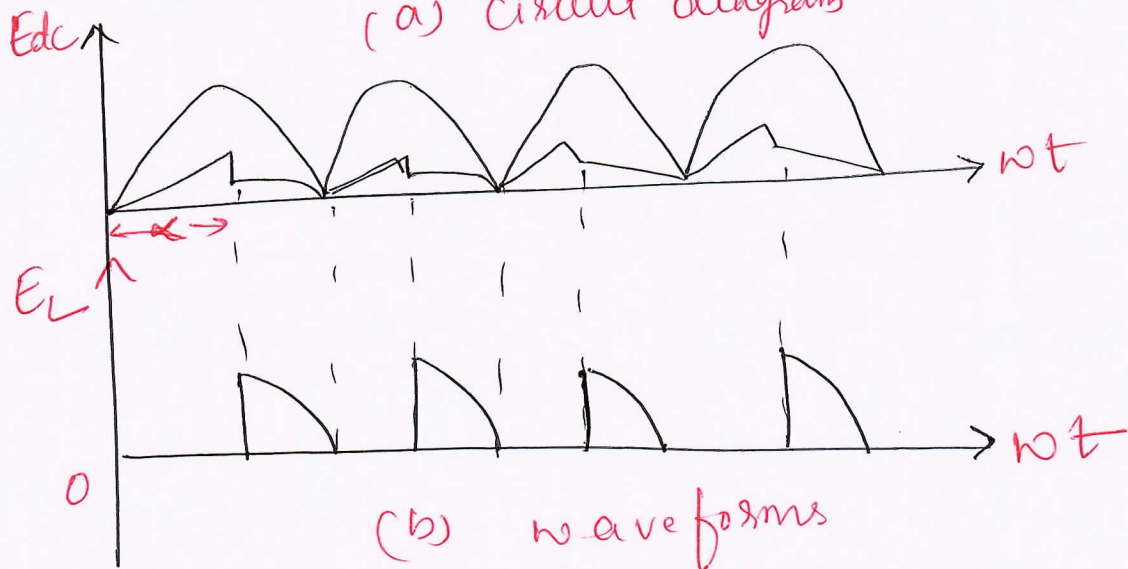 (a) Circuit diagram
Edc
wt
α
EL
wt
0
(b) waveforms